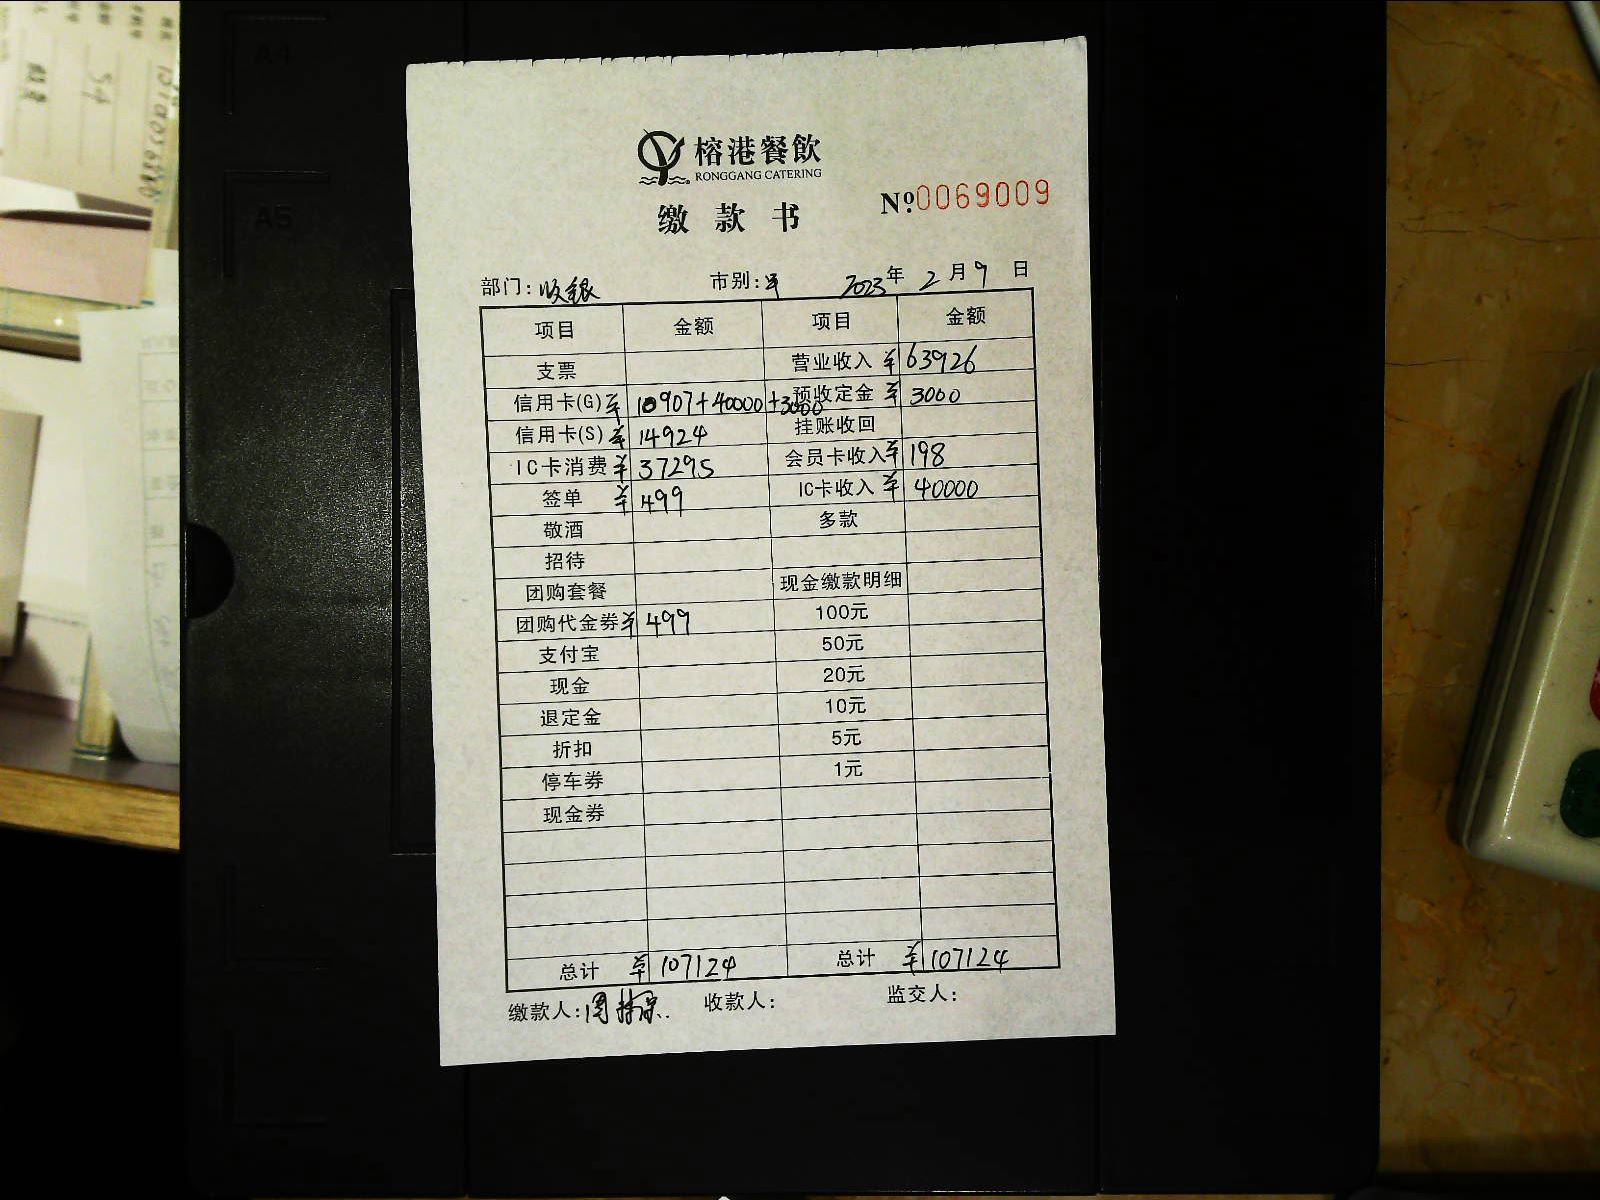 A4
A5
榕港餐飲
RONGGANG CATERING
缴款书
Nº:0069009
部门:收银 市别:早 2023年2月9日
项目 金额 项目 金额
支票 营业收入 ¥63926
信用卡(G) ¥10907+40000+3000 预收定金 ¥3000
信用卡(S) ¥14924 挂账收回
IC卡消费 ¥37295 会员卡收入 ¥198
签单 ¥499 IC卡收入 ¥40000
敬酒 多款
招待
团购套餐 现金缴款明细
团购代金券 ¥499 100元
支付宝 50元
现金 20元
退定金 10元
折扣 5元
停车券 1元
现金券
总计 ¥107124 总计 ¥107124
缴款人: 收款人: 监交人: